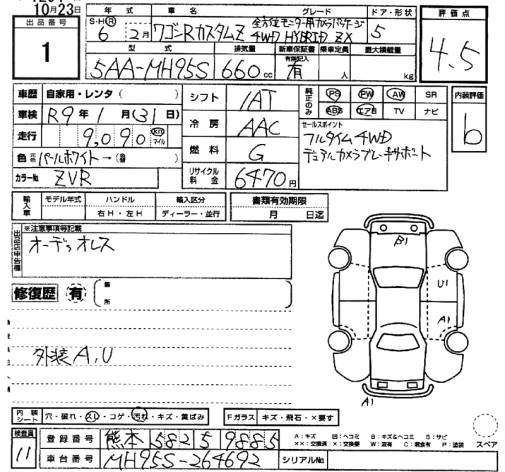 10月23日
出品番号
1
年式
S・H・R
6年2月
車名
ワゴンRカスタムZ
グレード
全方位モニター用カメラパッケージ
4WD HYBRID ZX
ドア・形状
5
評価点
4.5
型式
5AA-MH95S
排気量
660cc
新車保証書
有
有無記入
乗車定員
人
最大積載量
kg
車歴
自家用・レンタ( )
車検
R9年1月(31)日
走行
9,090
km
マイル
色
パールホワイト→
カラーNo
ZVR
シフト
IAT
冷房
AAC
燃料
G
リサイクル料金
6470円
純正のみ
PS
PW
AW
SR
ABS
エアB
TV
ナビ
内装評価
b
セールスポイント
フルタイム4WD
デュアルカメラブレーキサポート
輸入車
モデル年式
ハンドル
右H・左H
輸入区分
ディーラー・並行
書類有効期限
月 日迄
※注意事項号記載
出品店申告欄
オーディオレス
修復歴
有
箇所
外装A,U
B1
U1
A1
A1
内装
シート
穴・破れ・スレ・コゲ・汚れ・キズ・黄ばみ
Fガラス
キズ・飛石・×要す
スペア
検査員
11
登録番号
熊本 582 5 9885
車台番号
MH95S-264692
シリアルNo
A:キズ
U:ヘコミ
B:キズ&ヘコミ
S:サビ
××:交換済
×:要交換
W:波有
C:腐食有
P:塗装